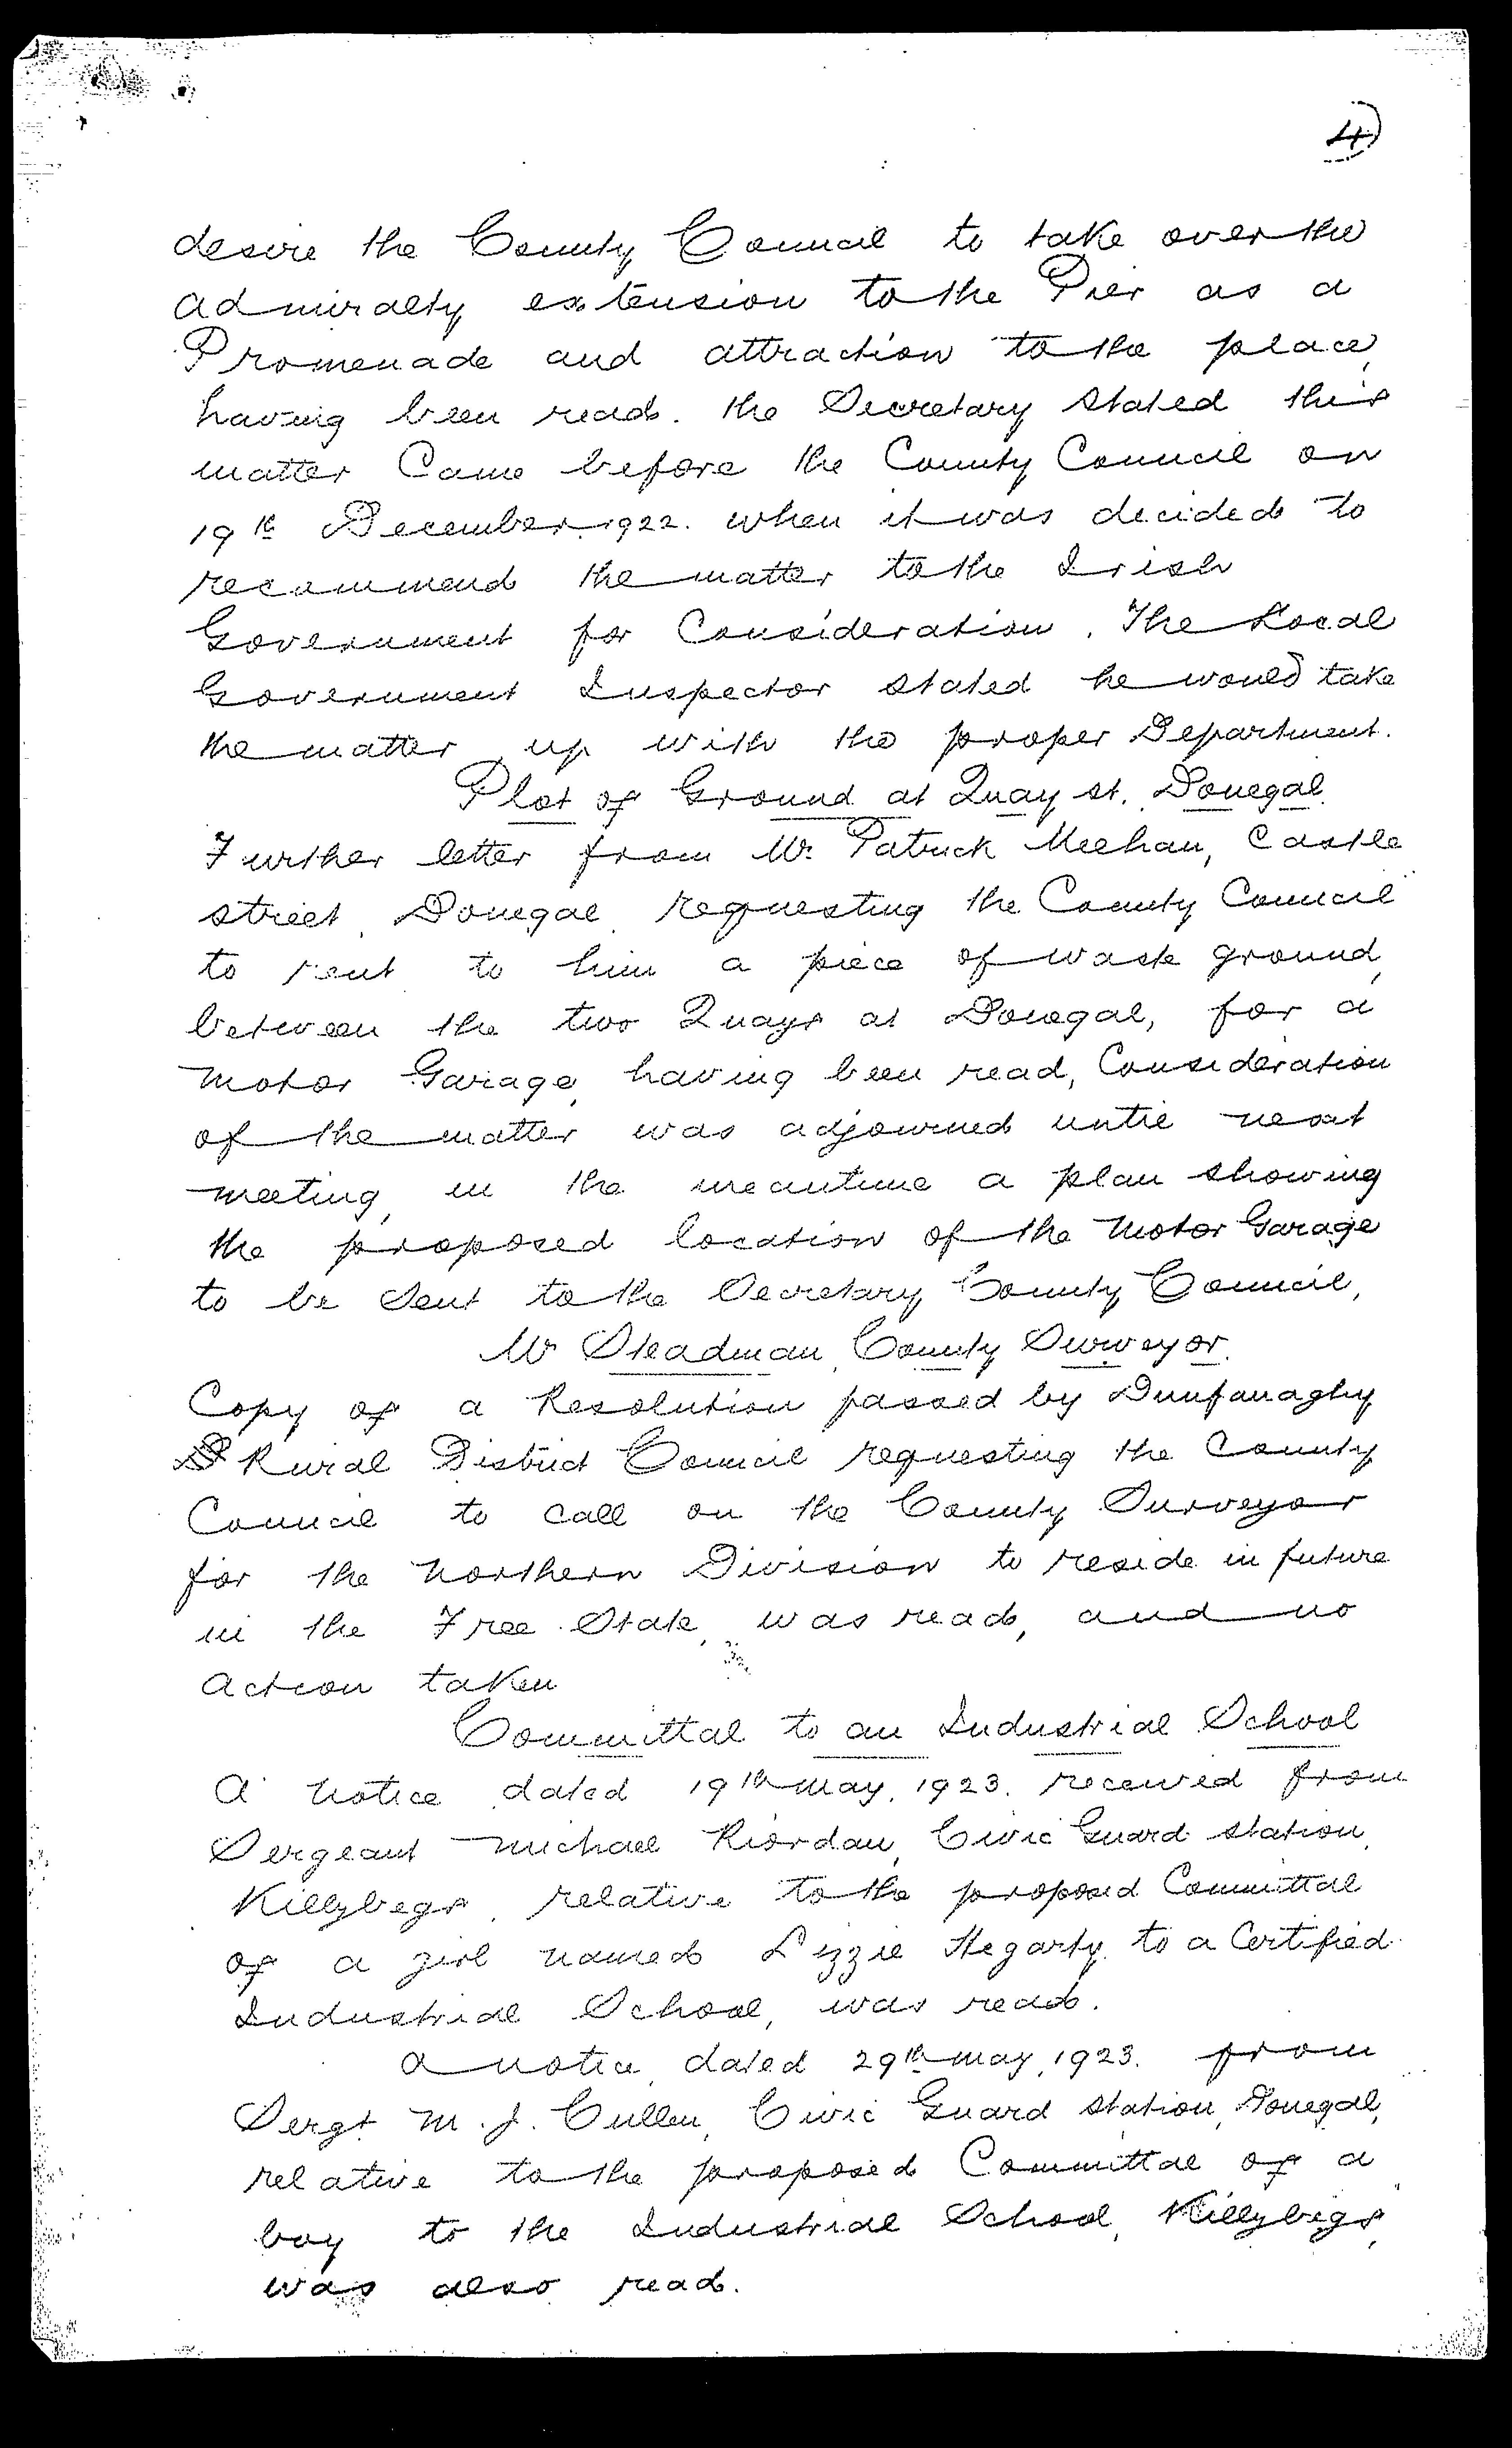 4)
desire the County Council to take over the
Admiralty extension to the Pier as a
Promenade and attraction to the place,
having been read. the Secretary stated this
matter Came before the County Council on
19th December 1922. when it was decided to
recommend the matter to the Irish
Government for Consideration. The Local
Government Inspector stated he would take
the matter up with the proper Department.
Plot of Ground at Quay st. Donegal.
Further letter from Mr. Patrick Meehan, Castle
street, Donegal, requesting the County Council
to rent to him a piece of waste ground,
between the two Quays at Donegal, for a
Motor Garage, having been read, Consideration
of the matter was adjourned until next
meeting, in the meantime a plan showing
the proposed location of the Motor Garage
to be Sent to the Secretary County Council,
Mr Steadman, County Surveyor.
Copy of a Resolution passed by Dunfanaghy
Rural District Council requesting the County
Council to call on the County Surveyor
for the Northern Division to reside in future
in the Free State, was read, and no
action taken
Committal to an Industrial School
A Notice dated 19th May, 1923. received from
Sergeant Michael Riordan, Civic Guard station,
Killybegs, relative to the proposed Committal
of a girl named Lizzie Hegarty, to a Certified
Industrial School, was read.
A notice, dated 29th May, 1923. from
Sergt. M. J. Cullen, Civic Guard station, Donegal,
relative to the proposed Committal of a
boy to the Industrial School, Killybegs,
was also read.